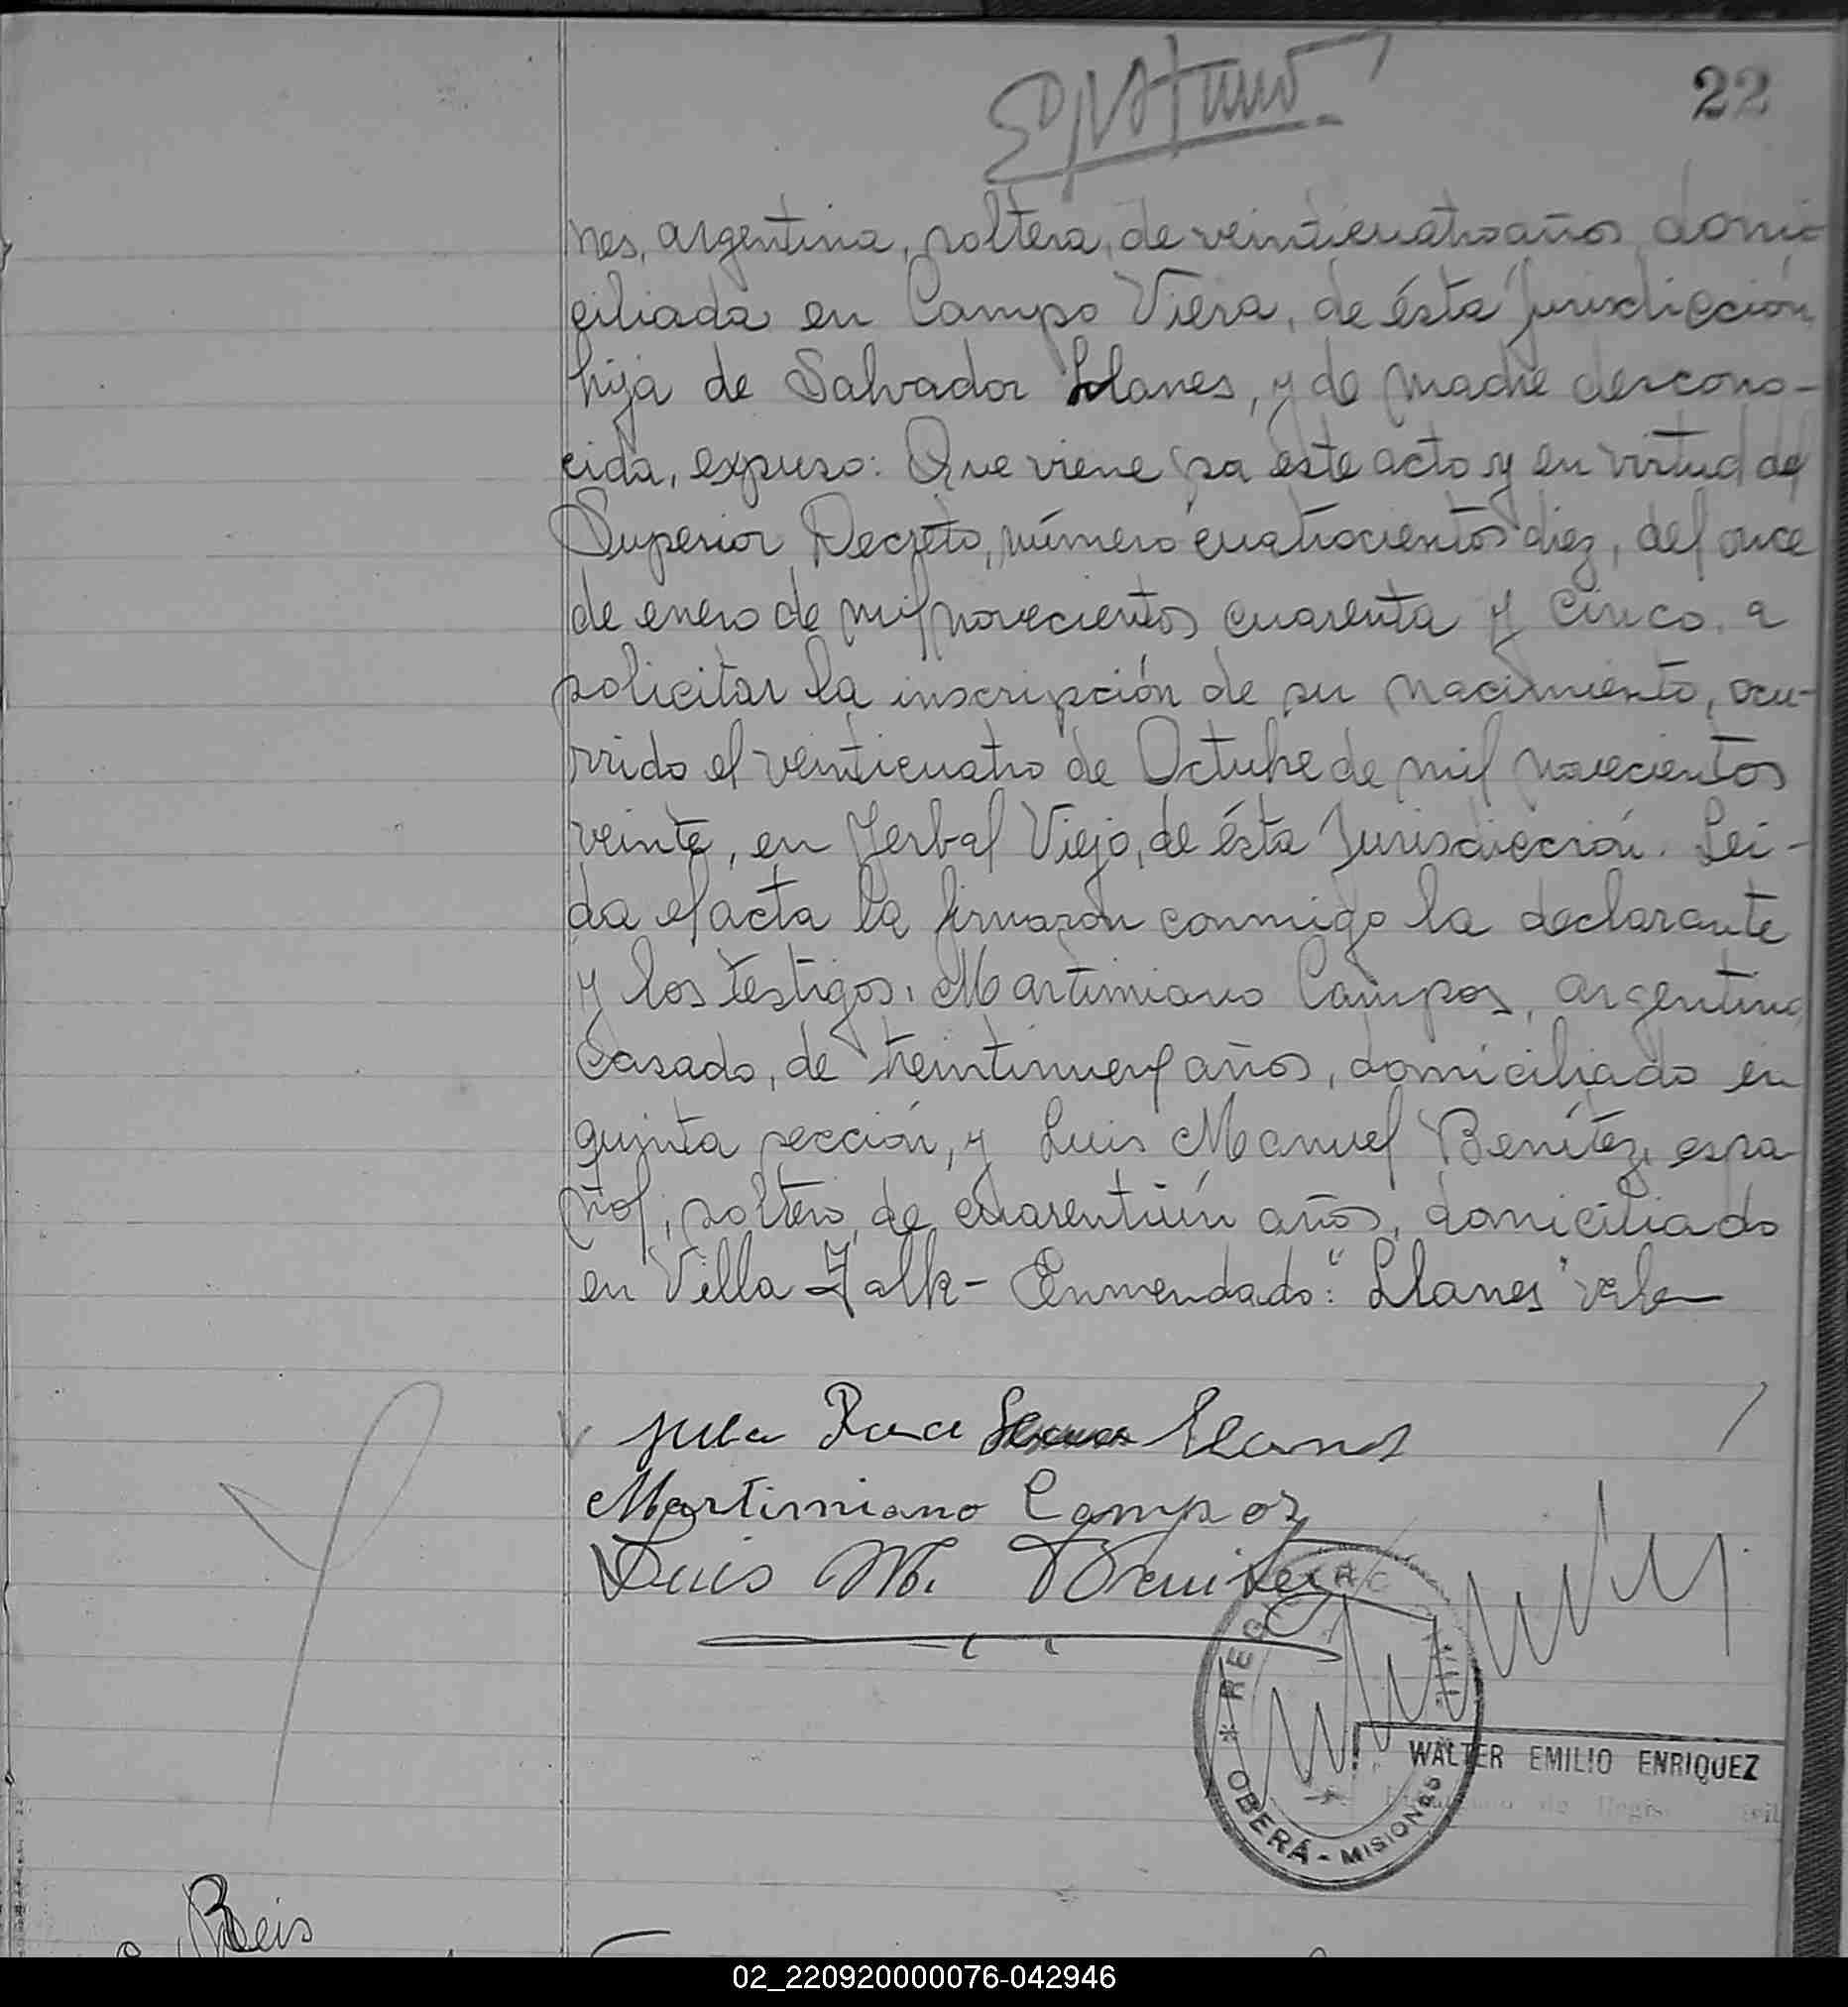 22
nes, argentina, soltera, de veinticuatro años, domi-
ciliada en Campo Viera, de ésta Jurisdicción,
hija de Salvador Llanes, y de madre descono-
cida, expuso: Que viene pa este acto y en virtud del
Superior Decreto, número cuatrocientos diez, del once
de enero de mil novecientos cuarenta y cinco, a
solicitar la inscripción de su nacimiento, ocu-
rrido el veinticuatro de Octubre de mil novecientos
veinte, en Yerbal Viejo, de ésta Jurisdicción. Lei-
da el acta la firmaron conmigo la declarante
y los testigos, Martimiano Campos, argentino,
casado, de treintinueve años, domiciliado en
quinta sección, y Luis Manuel Benítez, espa-
ñol, soltero, de cuarentiún años, domiciliado
en Villa Falk- Enmendado: "Llanes" vale
Llanes
Martimiano Campos
Luis M. Benitez
REGI
OBERÁ - MISIONES
WALTER EMILIO ENRIQUEZ
de Regis
Reis
02_220920000076-042946